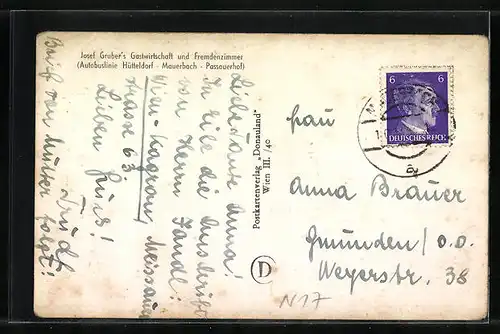 Josef Gruber's Gastwirtschaft und Fremdenzimmer
(Autobuslinie Hütteldorf - Mauerbach - Passauerhof)
Liebe Tante Anna!
In Eile die Anschrift
von Herrn Sandl:
Wien-Kagran, Meissauer
strasse 63
Lieben Gruß!
Trude
Brief von Mutter folgt!
Postkartenverlag „Donauland"
Wien III./40
D
6 6
DEUTSCHES REICH
Frau
Anna Brauer
Gmunden / O.D.
Weyerstr. 38
N 17